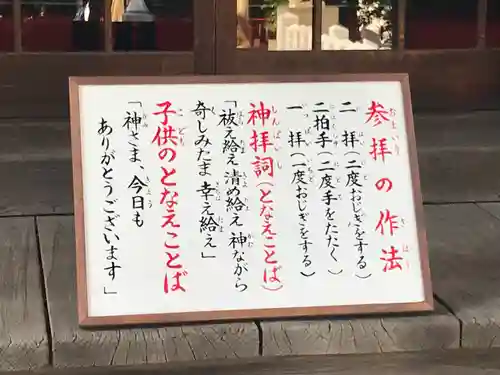 参拝の作法
二拝(二度おじぎをする)
二拍手(二度手をたたく)
一拝(一度おじぎをする)
神拝詞(となえことば)
「祓え給え清め給え神ながら
奇しみたま 幸え給え」
子供のとなえことば
「神さま、今日も
ありがとうございます」